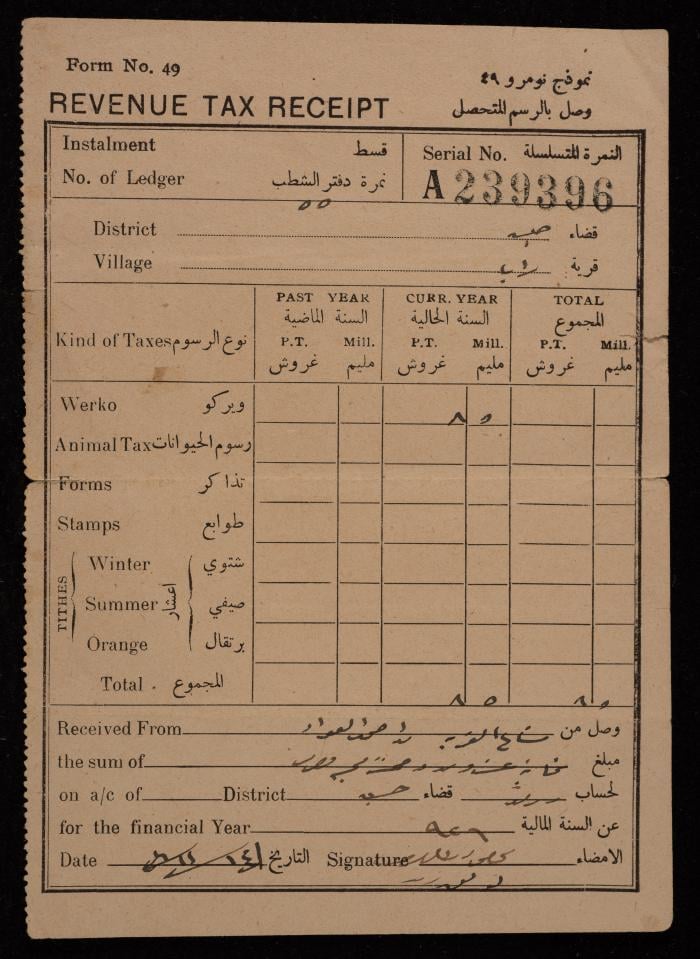 Form No. 49
نموذج نومرو ٤٩
REVENUE TAX RECEIPT
وصل بالرسم المتحصل
Instalment قسط
Serial No. النمرة المتسلسلة
No. of Ledger نمرة دفتر الشطب
A 239396
٥٥
District قضاء
Village قرية
PAST YEAR CURR. YEAR TOTAL
السنة الماضية السنة الحالية المجموع
Kind of Taxes نوع الرسوم
P.T. Mill. P.T. Mill. P.T. Mill.
غروش مليم غروش مليم غروش مليم
Werko ويركو ٨ ٥
Animal Tax رسوم الحيوانات
Forms تذاكر
Stamps طوابع
TITHES اعشار
Winter شتوي
Summer صيفي
Orange برتقال
Total المجموع ٨ ٥ ٨٥
Received From وصل من
the sum of مبلغ
on a/c of District قضاء لحساب
for the financial Year ٩٤٦ عن السنة المالية
Date التاريخ Signature الامضاء